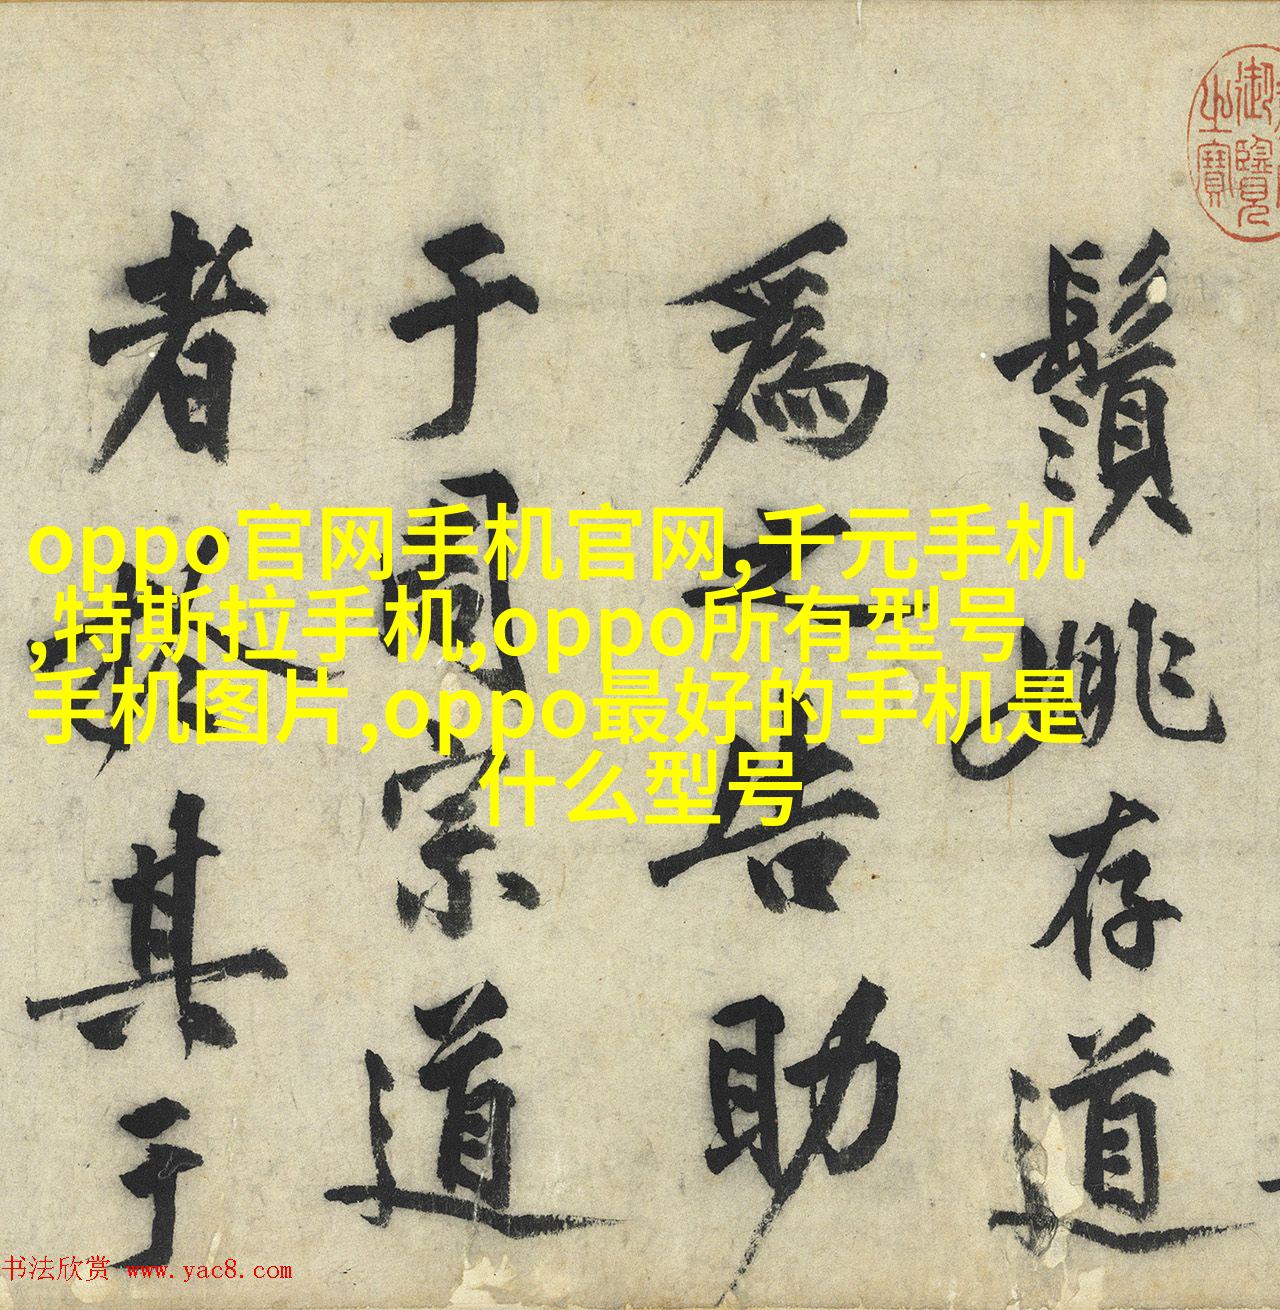 御覽
之寶
鬚姚存道
為之告助
于周宗道
者其于
oppo官网手机官网,千元手机
,特斯拉手机,oppo所有型号
手机图片,oppo最好的手机是
什么型号
书法欣赏 www.yac8.com